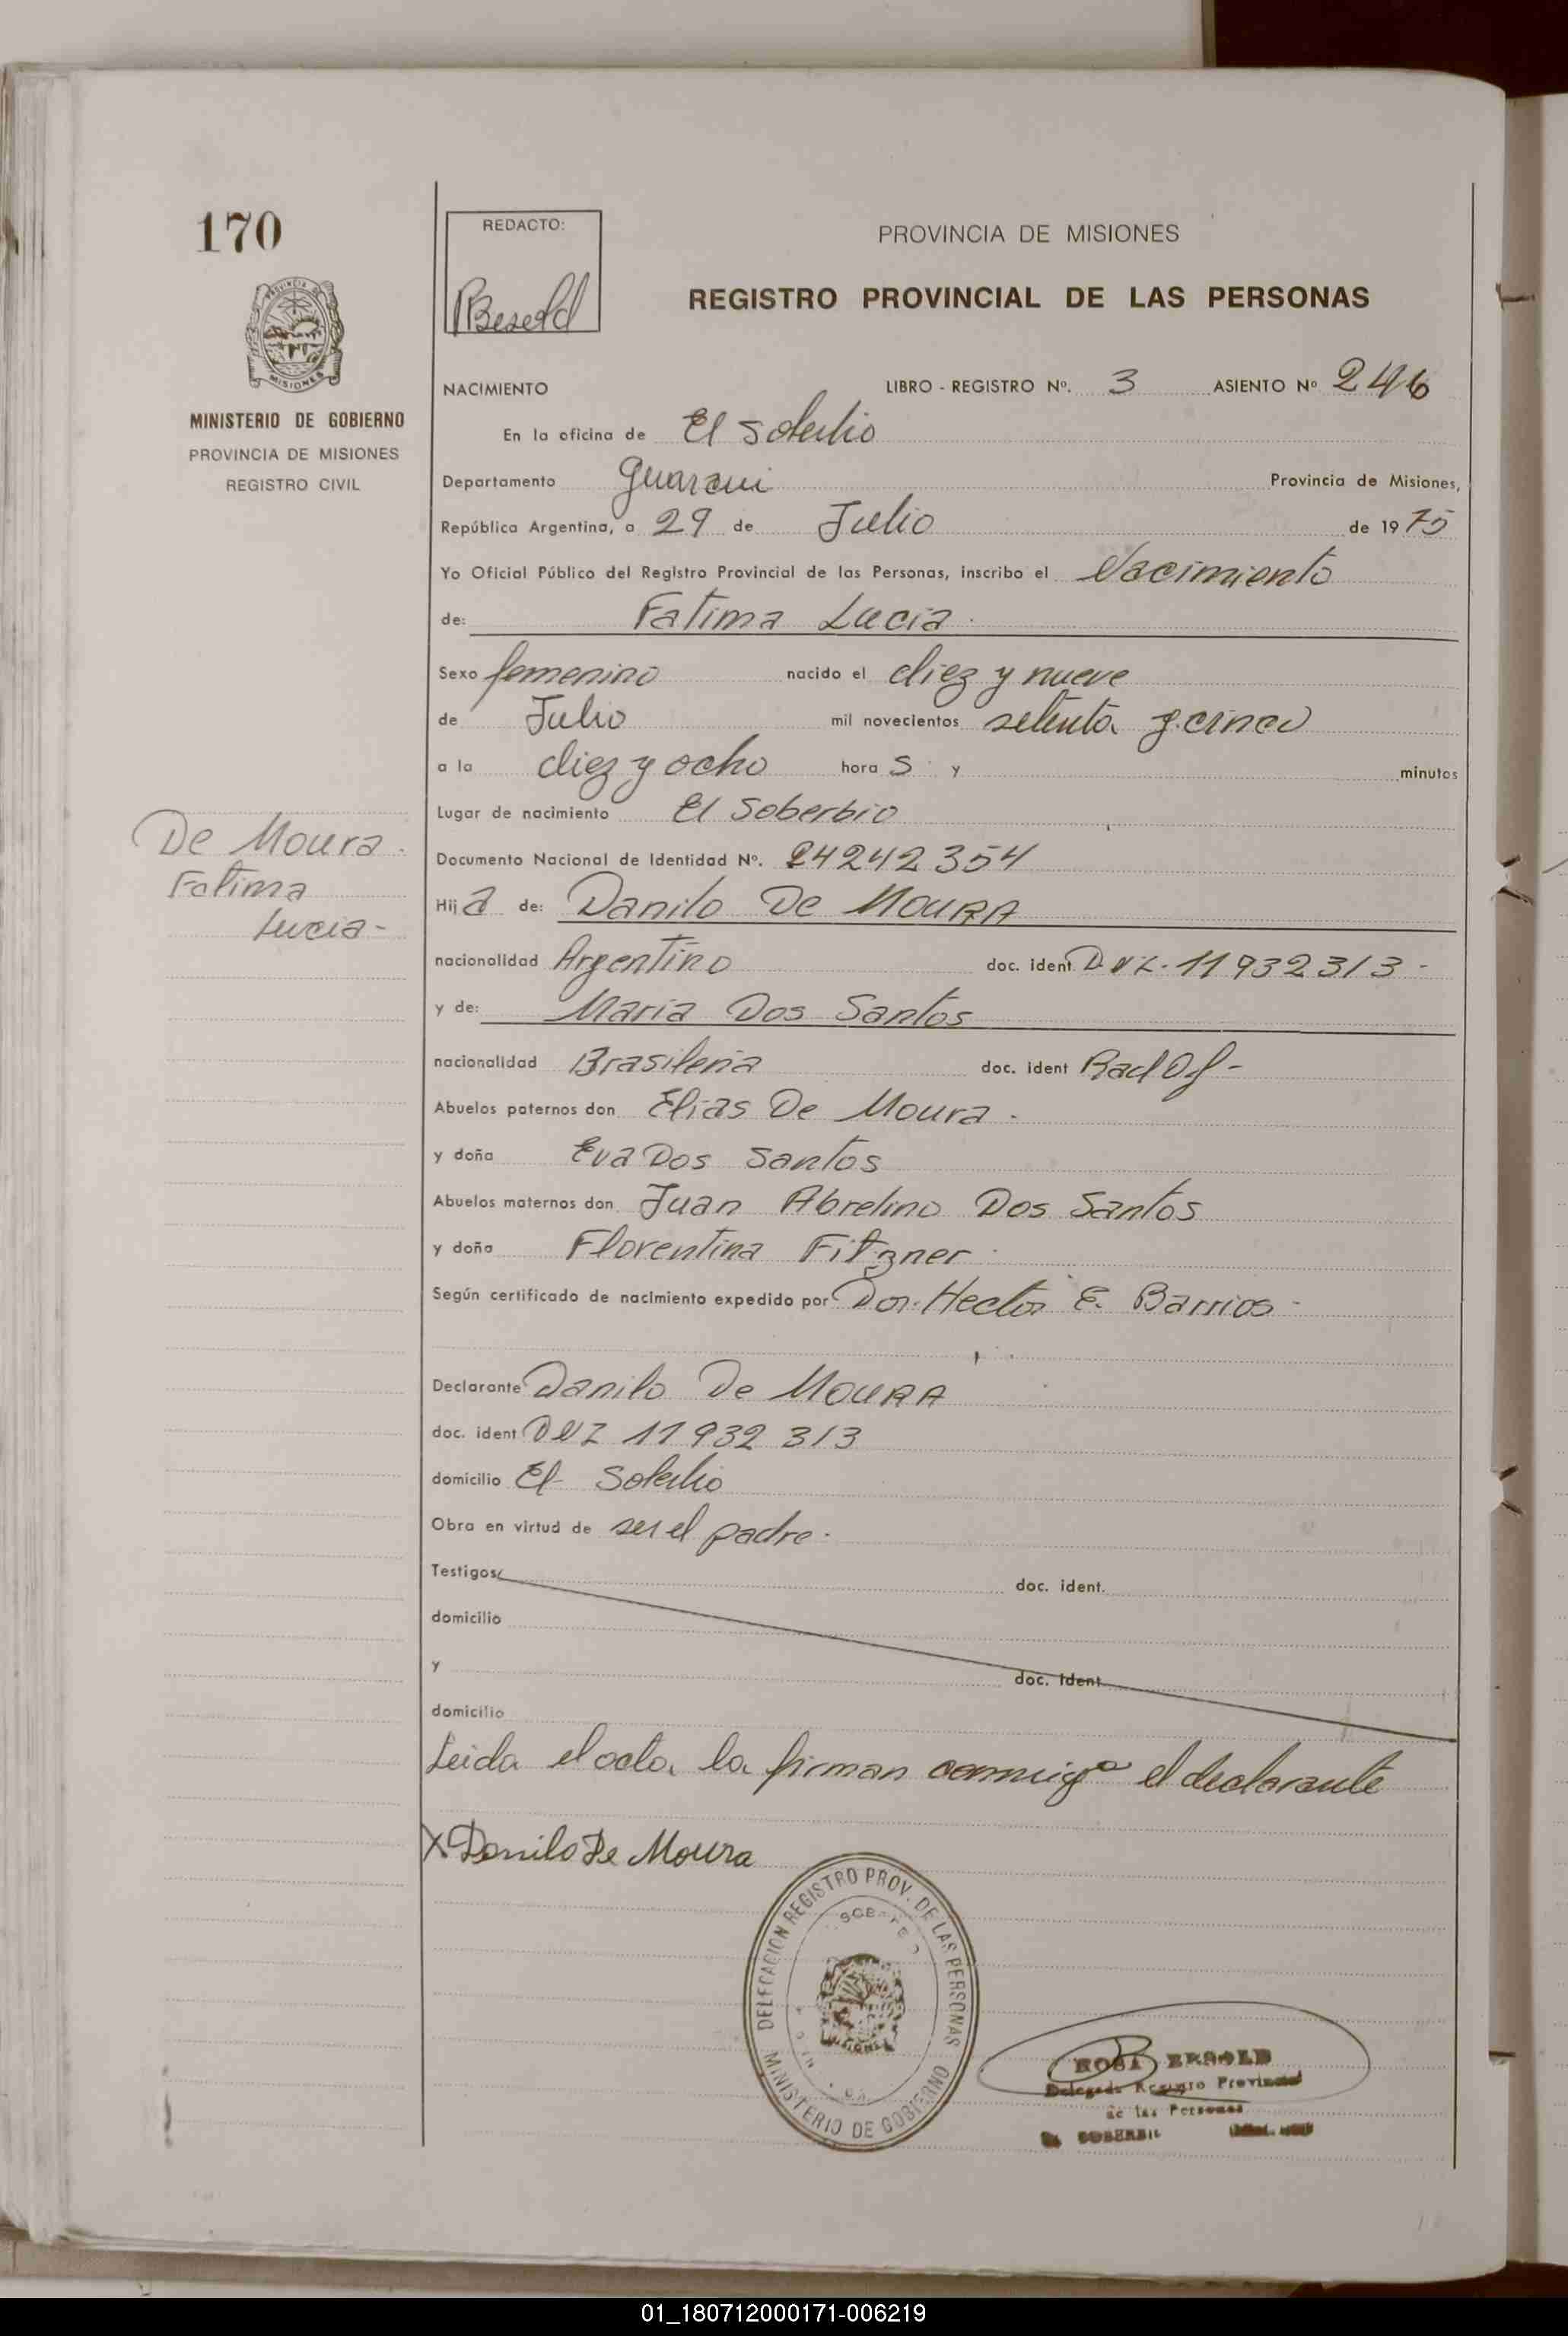 170
REDACTO:
RBesold
PROVINCIA DE MISIONES
REGISTRO PROVINCIAL DE LAS PERSONAS
PROVINCIA DE
MISIONES
MINISTERIO DE GOBIERNO
PROVINCIA DE MISIONES
REGISTRO CIVIL
NACIMIENTO LIBRO - REGISTRO Nº. 3 ASIENTO Nº 246
En la oficina de El Soberbio
Departamento Guarani Provincia de Misiones,
República Argentina, a 29 de Julio de 19 75
Yo Oficial Público del Registro Provincial de las Personas, inscribo el Nacimiento
de: Fatima Lucia.
Sexo femenino nacido el diez y nueve
de Julio mil novecientos setenta y cinco
a la diez y ocho hora S y minutos
Lugar de nacimiento El Soberbio
De Moura.
Fatima
Lucia-
Documento Nacional de Identidad Nº. 24242354
Hija de: Danilo De MOURA
nacionalidad Argentino doc. ident D.N.I. 11932313-
y de: Maria Dos Santos
nacionalidad Brasileña doc. ident
Abuelos paternos don Elias De Moura.
y doña Eva Dos Santos
Abuelos maternos don Juan Abrelino Dos Santos
y doña Florentina Fitzner.
Según certificado de nacimiento expedido por Dor. Hector E. Barrios-
Declarante Danilo De MOURA
doc. ident DNI 11932313
domicilio El Soberbio
Obra en virtud de ser el padre.
Testigos doc. ident.
domicilio
y doc. ident
domicilio
Leida el acta la firman conmigo el declarante
X Danilo De Moura
DELEGACION REGISTRO PROV. DE LAS PERSONAS
MINISTERIO DE GOBIERNO
MISIONES
ROSA BESOLD
Delegada Registro Provincial
de las Personas
SOBERBIO
01_180712000171-006219